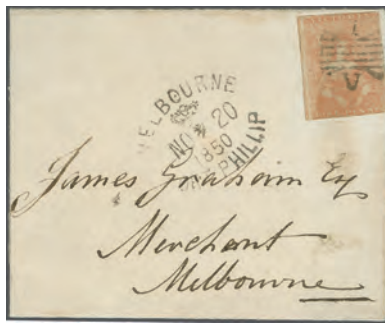 MELBOURNE
NOV 20
1850
PHILLIP
James Graham Esq
Merchant
Melbourne